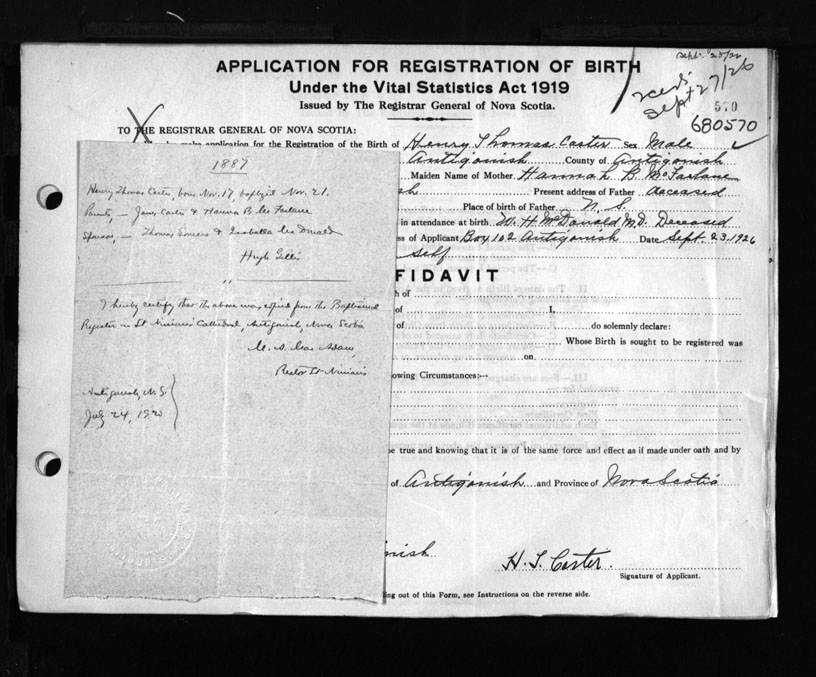 Sept. 25/26
APPLICATION FOR REGISTRATION OF BIRTH
Under the Vital Statistics Act 1919
Issued by The Registrar General of Nova Scotia.
Sept 27/26
570
680570
TO THE REGISTRAR GENERAL OF NOVA SCOTIA:
make application for the Registration of the Birth of Henry Thomas Carter Sex Male
Antigonish County of Antigonish
Maiden Name of Mother Hannah B. McFarlane
sh Present address of Father deceased
Place of birth of Father N. S.
in attendance at birth W. H. McDonald M.D. Deceased
ss of Applicant Box 102 Antigonish Date Sept. 23, 1926
self
1887
Henry Thomas Carter, born Nov. 17, baptized Nov. 21.
Parents, — James Carter & Hanna B. McFarlane
Sponsors, — Thomas Somers & Isabella McDonald
Hugh Gillis
I hereby certify that the above was copied from the Baptismal
Register in St Ninian's Cathedral, Antigonish, Nova Scotia
Rector St Ninian's
Antigonish, N.S.
July 24, 1920
FIDAVIT
h of
of I,
of do solemnly declare:
Whose Birth is sought to be registered was
on
owing Circumstances:--
be true and knowing that it is of the same force and effect as if made under oath and by
of Antigonish and Province of Nova Scotia
nish
H. T. Carter.
Signature of Applicant.
ing out of this Form, see Instructions on the reverse side.